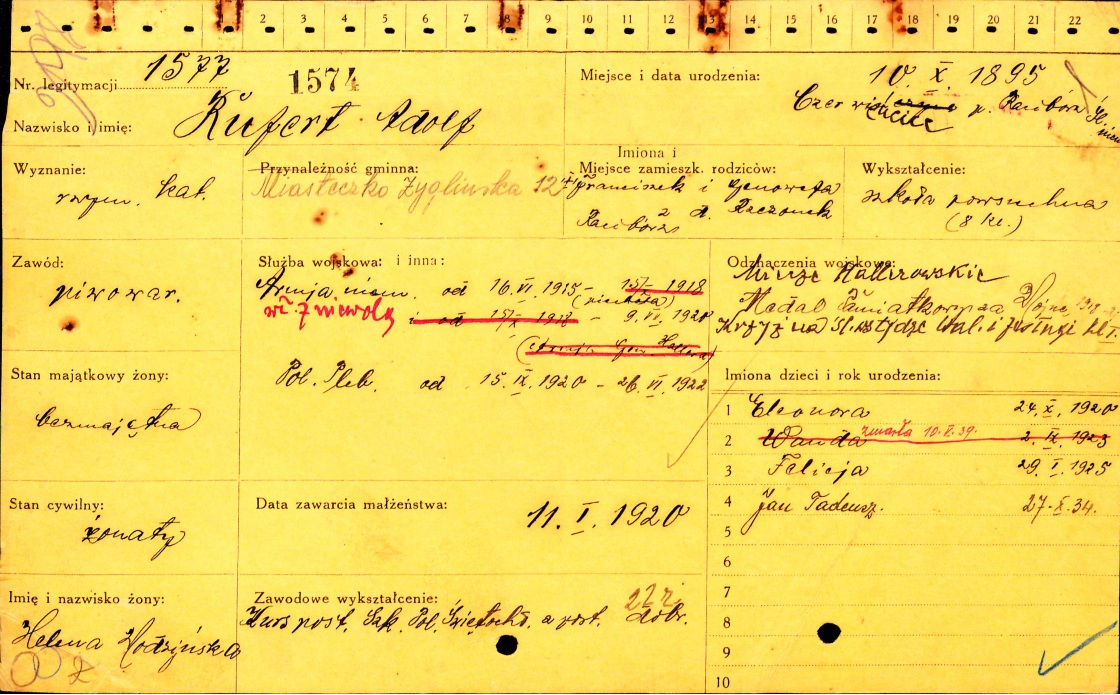 2 3 4 5 6 7 8 9 10 11 12 13 14 15 16 17 18 19 20 21 22
Nr. legitymacji 1577
1574
Nazwisko i imię: Kufert Adolf
Miejsce i data urodzenia: 10. X. 1895
p. Racibórz
Wyznanie:
rzym. kat.
Przynależność gminna:
Miasteczko Żyglińska 124
Imiona i
Miejsce zamieszk. rodziców:
Franciszek i Genowefa
z d. Raczonek
Racibórz
Wykształcenie:
szkoła powszechna
(8 kl.)
Zawód:
piwowar.
Służba wojskowa: i inna:
Armja niem. od 16.VI.1915 - 15/X 1918
(piechota)
w niewoli
i od 15/X 1918 - 9.VI.1920
(Armja Gen. Hallera)
Pol. Pleb. od 15.IX.1920 - 26.VI.1922
Odznaczenia wojskowe:
Miecze Hallerowskie
Medal
Krzyż na Śl. wstędze Wal. i Zasługi kl. I.
Stan majątkowy żony:
bezmajętna
Imiona dzieci i rok urodzenia:
1 Eleonora 24.X.1920
2 Wanda zmarła 10.V.39. 2.IX.1923
3 Felicja 29.I.1925
4 Jan Tadeusz. 27.X.34.
5
6
7
8
9
10
Stan cywilny:
żonaty
Data zawarcia małżeństwa:
11. I. 1920
Imię i nazwisko żony:
Helena Wodzińska
Zawodowe wykształcenie:
Kurs post. Szk. Pol. Świętochł. z post. dobr.